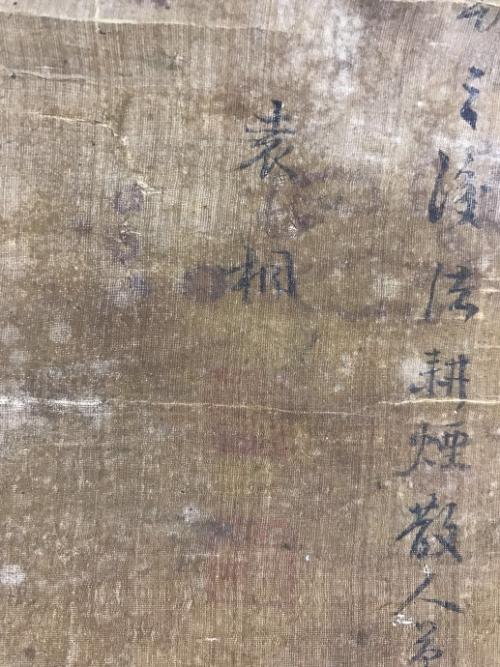 之後法耕煙散人
袁桐